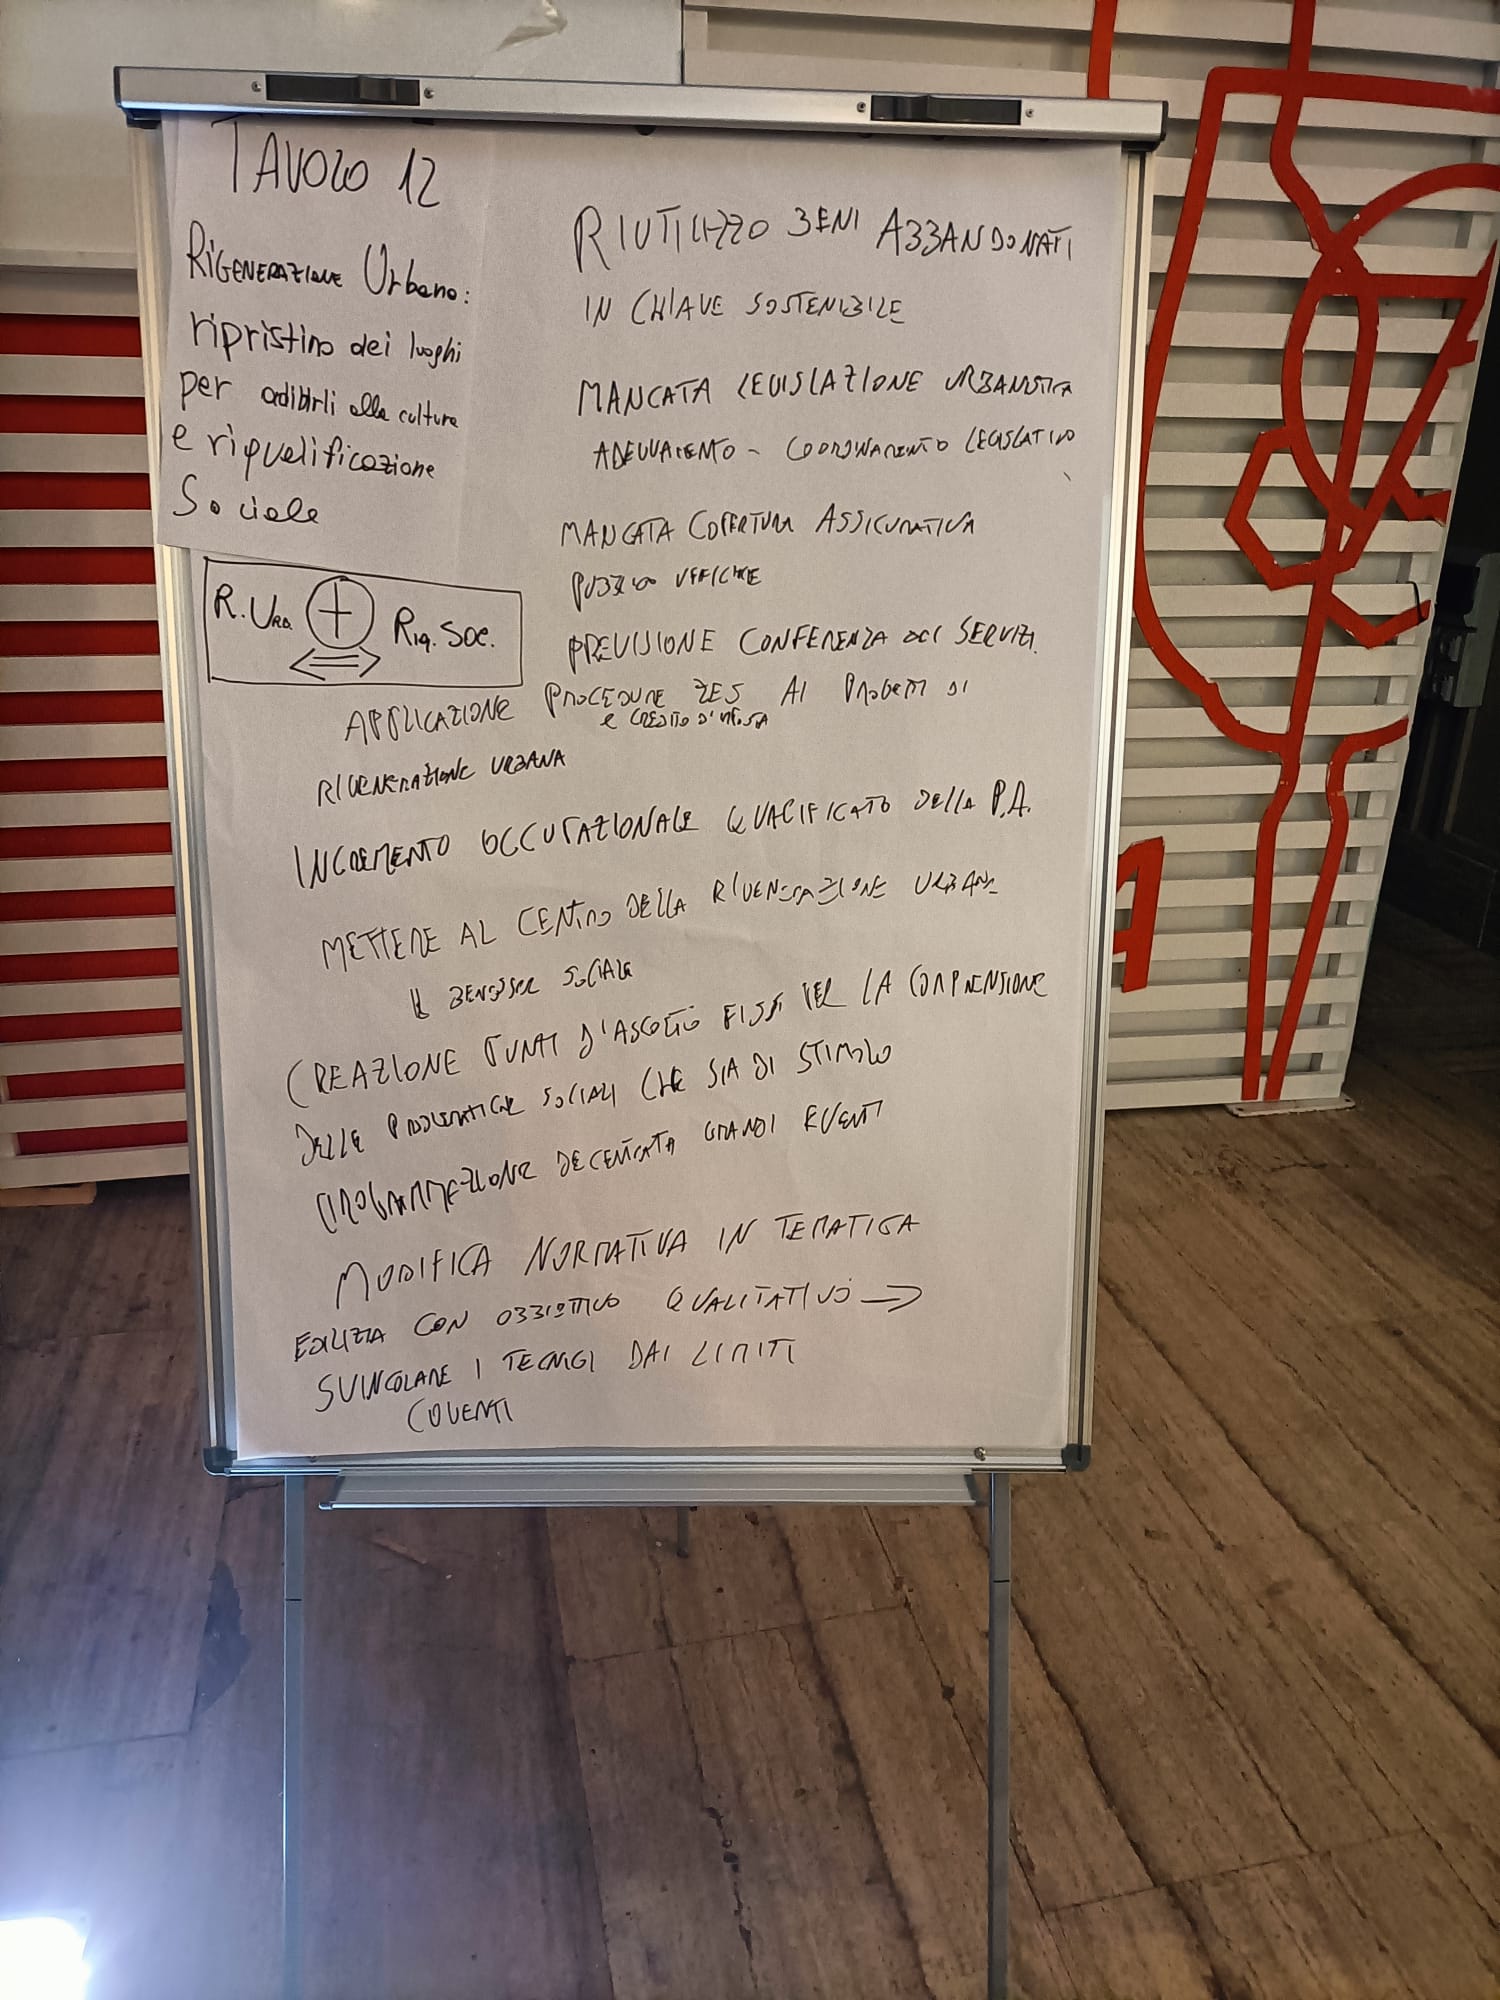 TAVOLO 12
RIGENERAZIONE Urbana:
ripristino dei luoghi
per adibirli alla cultura
e riqualificazione
Sociale
R. URB. + RIQ. SOC.
RIUTILIZZO BENI ABBANDONATI
IN CHIAVE SOSTENIBILE
MANCATA LEGISLAZIONE URBANISTICA
ADEGUAMENTO - COORDINAMENTO LEGISLATIVO
MANCATA COPERTURA ASSICURATIVA
PUBBLICO UFFICIALE
PREVISIONE CONFERENZA DEI SERVIZI
APPLICAZIONE PROCEDURE ZES AI PROGETTI DI
e CREDITO D'IMPOSTA
RIGENERAZIONE URBANA
INCREMENTO OCCUPAZIONALE QUALIFICATO DELLA P.A.
METTERE AL CENTRO DELLA RIGENERAZIONE URBANA
IL BENESSERE SOCIALE
CREAZIONE PUNTI D'ASCOLTO FISSI PER LA COMPRENSIONE
DELLE PROBLEMATICHE SOCIALI CHE SIA DI STIMOLO
PROGRAMMAZIONE DECENTRATA GRANDI EVENTI
MODIFICA NORMATIVA IN TEMATICA
EDILIZIA CON OBBIETTIVO QUALITATIVO →
SVINCOLARE I TECNICI DAI LIMITI
COGENTI